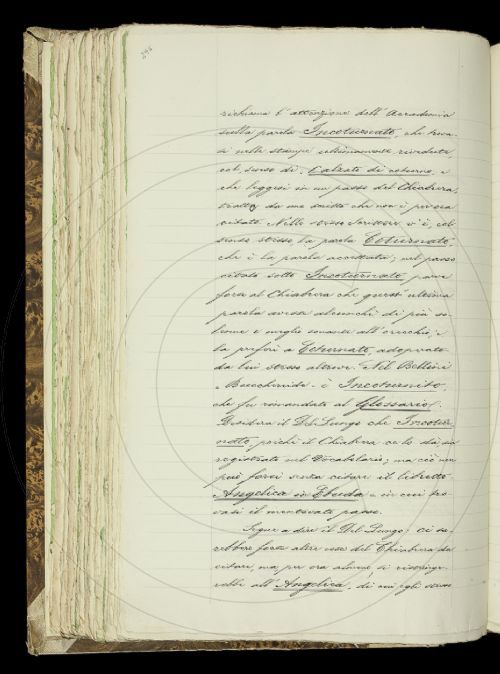 richiama l'attenzione dell'Accademia
sulla parola Incoturnato, che trova
si nelle stampe ultimamente rivedute,
col senso di: Calzato di coturno, e
che leggesi in un passo del Chiabrera,
tratto da uno scritto che non è per ora
citato. Nello stesso Scrittore v'è, col
senso stesso la parola Coturnato
che è la parola accettata; nel passo
citato sotto Incoturnato, parve
forse al Chiabrera che quest'ultima
parola avesse alcunchè di più so
lenne e meglio sonante all'orecchio, e
la preferì a Coturnato, adoperato
da lui stesso altrove. Nel Bellini
Bucchereide è Incoturnito,
che fu rimandato al Glossario.
Desidera il Del Lungo che Incotur
nato, poichè il Chiabrera ce lo dà, sia
registrato nel Vocabolario; ma ciò non
può farsi senza citare il libretto
Angelica in Ebuda in cui tro
vasi il mentovato passo.
Segue a dire il Del Lungo: ci sa
rebbero forse altre cose del Chiabrera da
citare, ma per ora almeno si restringe
rebbe all'Angelica, di cui egli stesso